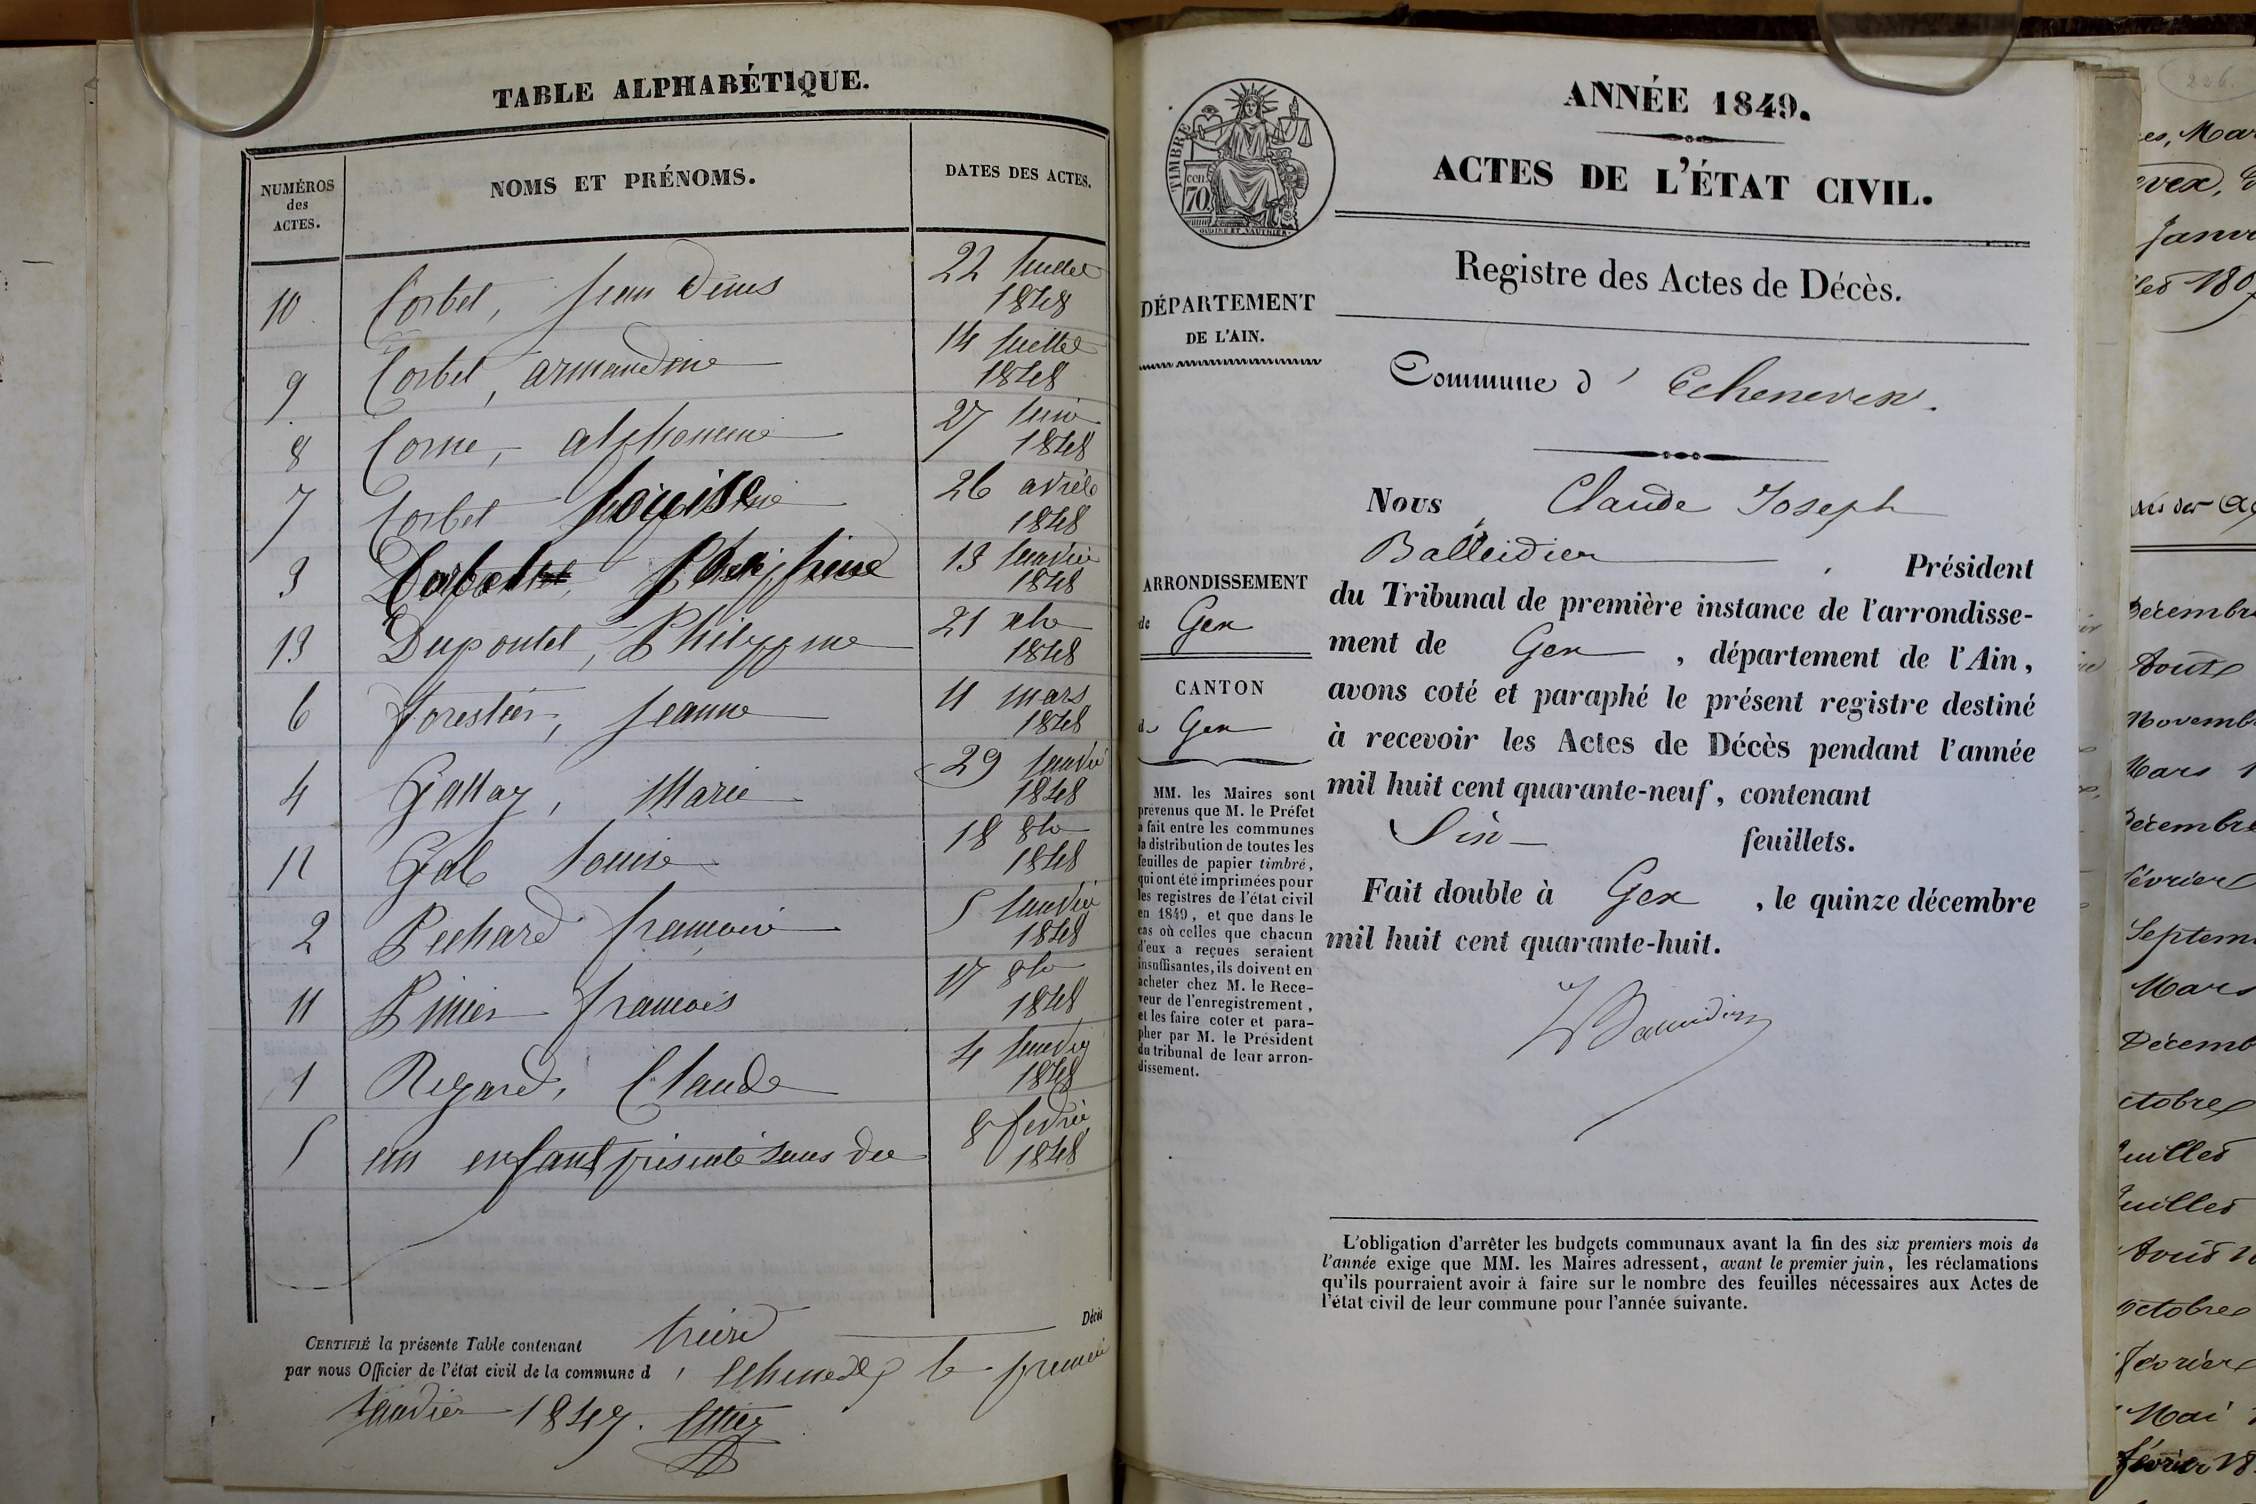 TABLE ALPHABÉTIQUE.
NUMÉROS des ACTES.
NOMS ET PRÉNOMS.
DATES DES ACTES.
10 Corbet, Jean Denis 22 Juillet 1848
9 Corbet, armandine 14 Juillet 1848
8 Corne, alphonsine 27 Juin 1848
7 Corbet Louise 26 avril 1848
3 13 Janvier 1848
13 Dupontet, Philippine 21 xbre 1848
6 Forestier, Jeanne 11 mars 1848
4 Gallay, Marie 29 Janvier 1848
12 Gal Louise 18 8bre 1848
2 Pechard françois 5 Janvier 1848
11 françois 17 8bre 1848
1 Regard, Claude 4 Janvier 1848
5 un enfant présenté sans vie 8 février 1848
CERTIFIÉ la présente Table contenant treize Décès
par nous Officier de l'état civil de la commune d' Echenevex le premier
Janvier 1849.
TIMBRE
70 cen
OUDINE ET VAUTHIER
ANNÉE 1849.
ACTES DE L'ÉTAT CIVIL.
Registre des Actes de Décès.
DÉPARTEMENT
DE L'AIN.
Commune d' Echenevex.
ARRONDISSEMENT
de Gex
CANTON
de Gex
MM. les Maires sont
prévenus que M. le Préfet
a fait entre les communes
la distribution de toutes les
feuilles de papier timbré,
qui ont été imprimées pour
les registres de l'état civil
en 1849, et que dans le
cas où celles que chacun
d'eux a reçues seraient
insuffisantes, ils doivent en
acheter chez M. le Rece-
veur de l'enregistrement,
et les faire coter et para-
pher par M. le Président
du tribunal de leur arron-
dissement.
Nous Claude Joseph
Balleidier, Président
du Tribunal de première instance de l'arrondisse-
ment de Gex, département de l'Ain,
avons coté et paraphé le présent registre destiné
à recevoir les Actes de Décès pendant l'année
mil huit cent quarante-neuf, contenant
Six feuillets.
Fait double à Gex, le quinze décembre
mil huit cent quarante-huit.
L'obligation d'arrêter les budgets communaux avant la fin des six premiers mois de
l'année exige que MM. les Maires adressent, avant le premier juin, les réclamations
qu'ils pourraient avoir à faire sur le nombre des feuilles nécessaires aux Actes de
l'état civil de leur commune pour l'année suivante.